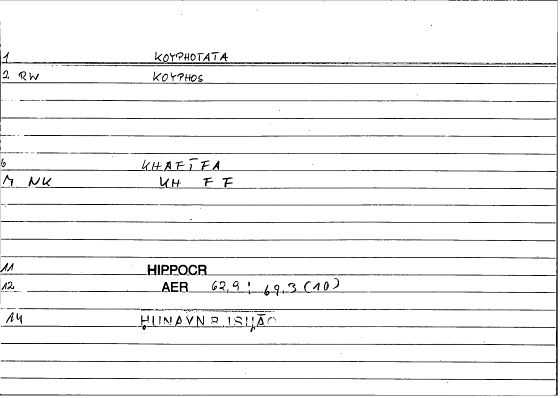 1 KOYPHOTATA
2 RW KOYPHOS
6 KHAFĪFA
M NK KH F F
11 HIPPOCR
12 AER 62,9; 69,3 (10)
14